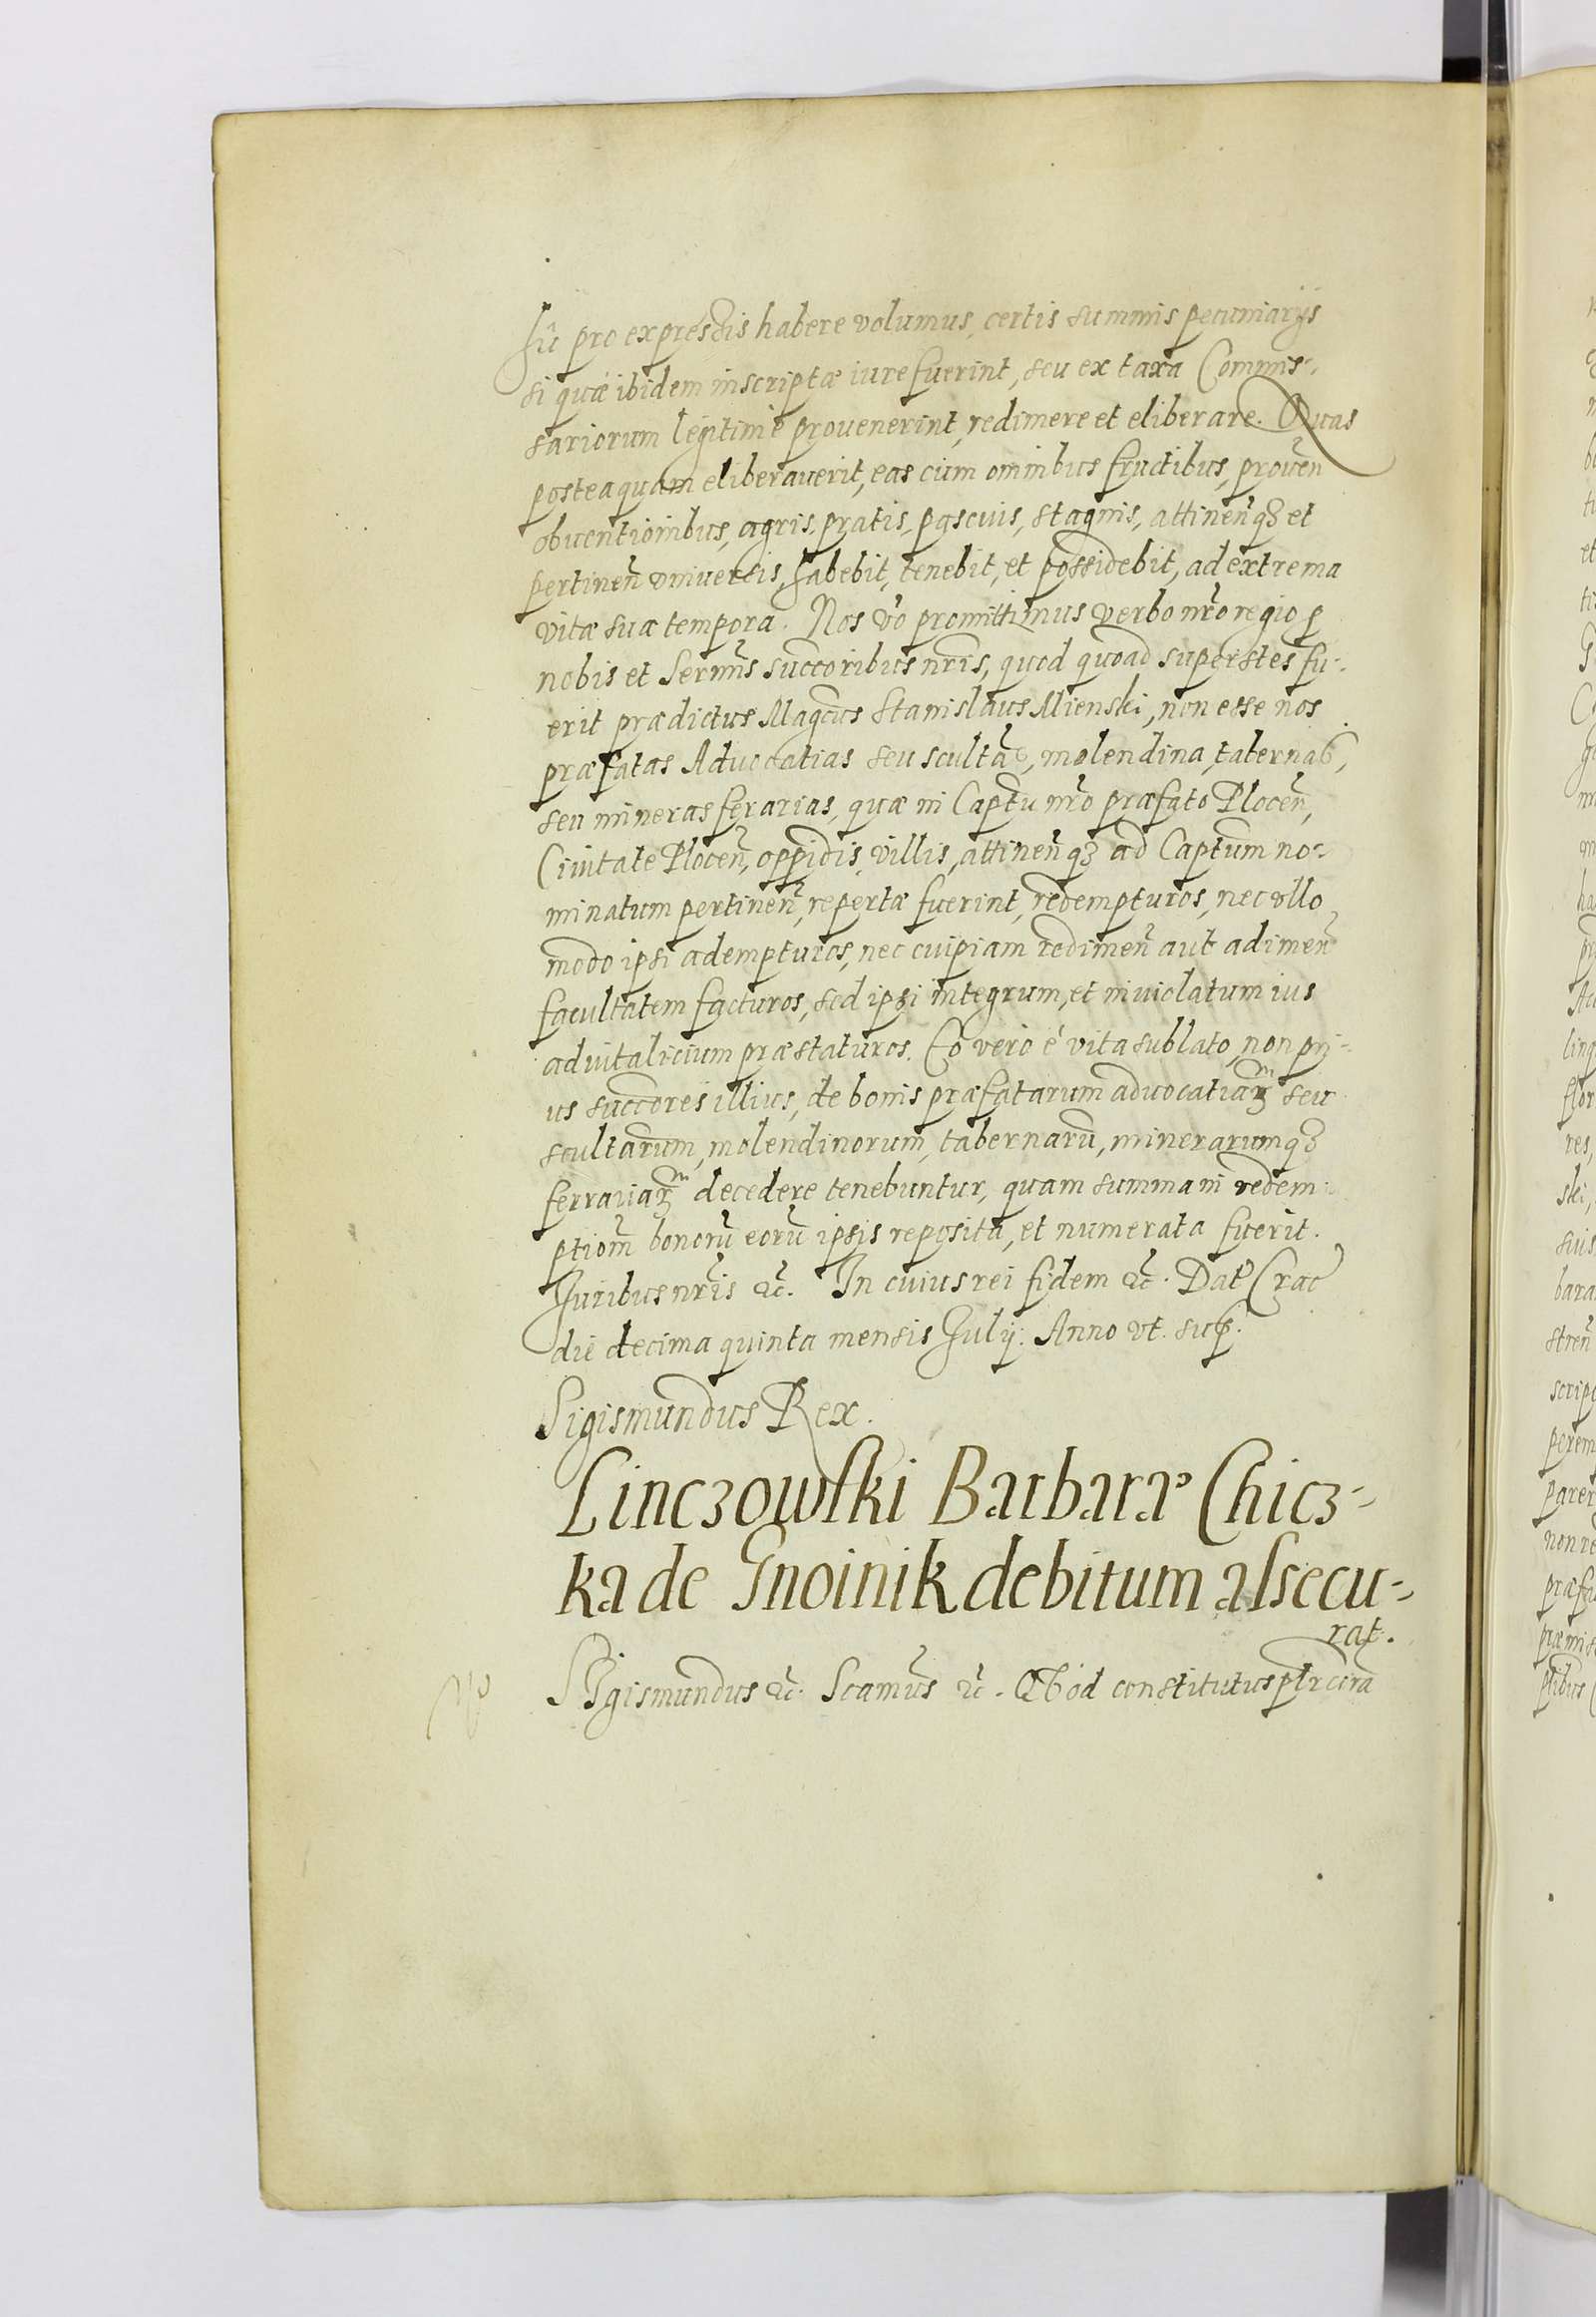 hic pro expressis habere volumus, certis summis pecuniarijs
si quæ ibidem inscriptæ iure fuerint, seu ex taxa Commis-
sariorum legitime prouenerint, redimere et eliberare. Quas
posteaquam eliberauerit, eas cum omnibus fructibus, prouen̄
obuentionibus, agris, pratis, pascuis, stagnis, attinen̄qȝ et
pertinen̄ vniuersis, habebit, tenebit, et possidebit, ad extrema
vitæ suæ tempora. Nos vō promittimus verbo nr̄o regio ꝓ
nobis et Sermīs succoribus nr̄is, quod quoad superstes fu-
erit prædictus Magcūs Stanislaus Mienski, non esse nos
præfatas Aduocatias seu scultās, molendina, tabernas,
seu mineras ferarias, quæ in Captu nr̄o præfato Plocen̄,
Ciuitate Plocen̄, oppidis, villis, attinen̄qȝ ad Captum no-
minatum pertinen̄, repertæ fuerint, redempturos, nec vllo
modo ipsi adempturos, nec cuipiam redimen̄ aut adimen̄
facultatem facturos, sed ipsi integrum, et inuiolatum ius
aduitalicium præstaturos. Eo vero è vita sublato, non pri-
us succores illius, de bonis præfatarum aduocatiaꝝ seu
scultarum, molendinorum, tabernarū, minerarumqȝ
ferrariaꝝ decedere tenebuntur, quam summa in redem-
ptiom̄ bonorū eorū ipsis reposita, et numerata fuerit.
Juribus nr̄is &c̄. In cuius rei fidem &c̄. Dat Crac
die decima quinta mensis Julij: Anno vt. sup.
Sigismundus Rex.
Linczowski Barbaræ Chicz-
ka de Gnoinik debitum assecu-
rat.
SIgismundus &c̄. Scamūs &c̄. Qd̄ od constitutus plr̄ corā